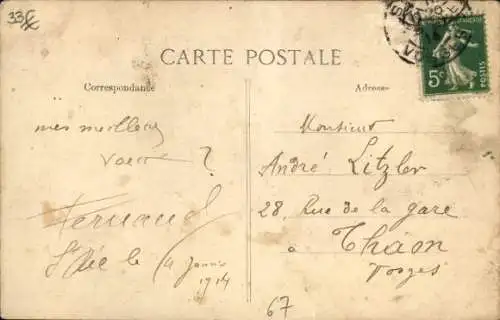 33
CARTE POSTALE
Correspondance
Adresse
5c
POSTES
mes meilleurs
voeux ?
Fernand
St Dié le 4 Janvier
1914
Monsieur
André Litzler
28, Rue de la gare
à Thaon
Vosges
67